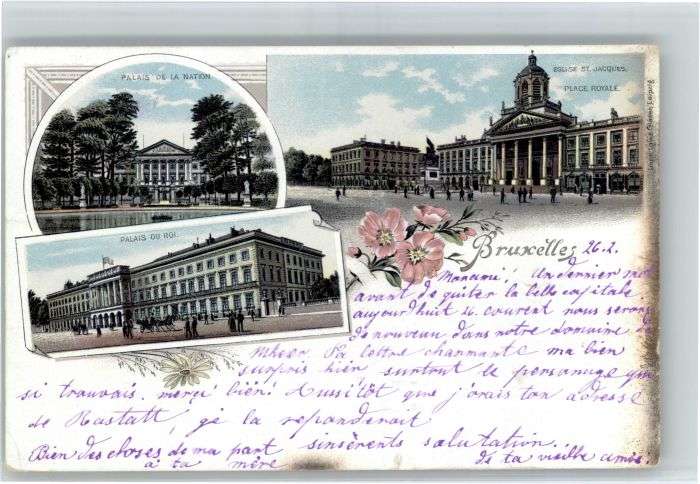 PALAIS DE LA NATION
EGLISE ST. JACQUES.
PLACE ROYALE.
PALAIS DU ROI.
Bruxelles 26.2.
Un dernier mot
avant de quiter la belle capitale
aujourd'huit 26. courent nous serons
de nouveau dans notre domaine de
Ta lettre charmante ma bien
surpris hièr surtout le personage que
si trouvais. merçi bien! Aussitôt que j'orais ton adresse
de Rastatt, je la reponderait
Bien des choses de ma part sinsèrents salutation.
a ta mère de ta vieille amie.